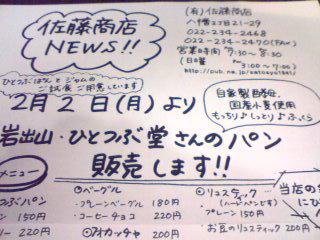 佐藤商店
NEWS!!
(有)佐藤商店
八幡2丁目21-29
022-234-2468
022-234-2470(FAX)
営業時間 7:30〜8:30
(日曜 7:00〜)
ひとつぶぱんと ジャムの
ご試食 ご用意しています
2月2日(月)より
自家製酵母、
国産小麦使用
もっちり♪しっとり♪ふくふく
岩出山・ひとつぶ堂さんのパン
販売します!!
メニュー
つぶパン
150円
220円
ベーグル
・プレーンベーグル 180円
・コーヒーチョコ 220円
フォカッチャ 200円
リュスティック…
(ハードパンです)
プレーン 150円
お豆のリュスティック 200円
当店の
にひ